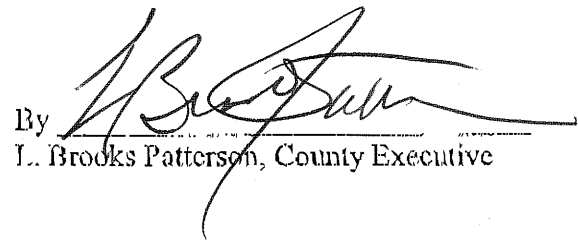 By
L. Brooks Patterson, County Executive